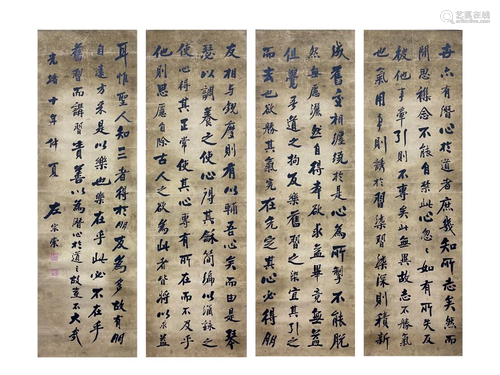 艺狐在线
世亦有潛心於道者庶幾知所志矣然而
間思襍念不能自禁此心忽〻如有所失及
被他事牽引則不專矣此無異故志不勝氣
也氣用事則誘於習染習染深則積新
成舊主相握繞於是心為所掣不能脫
然無應濂然自得卒欲求益畢竟無益
但覺乎道之拘反樂舊習之染宜其引之
而去也欲勝其氣先在克之其心必得朋
友相与銳摩則有以輔吾心矣而由是琴
瑟以調養之使心得其龢簡編以浸詠之
使心得其正常使其心專有所在而不及乎
他則思慮自除古人之欲為此者皆將以求益
耳惟聖人知三者得於朋友為多故有朋
自遠方来是以樂也樂在乎此必不在乎
舊習而講習責善以為潛心於道之故豈不大哉
光緒十年仲夏 左宗棠